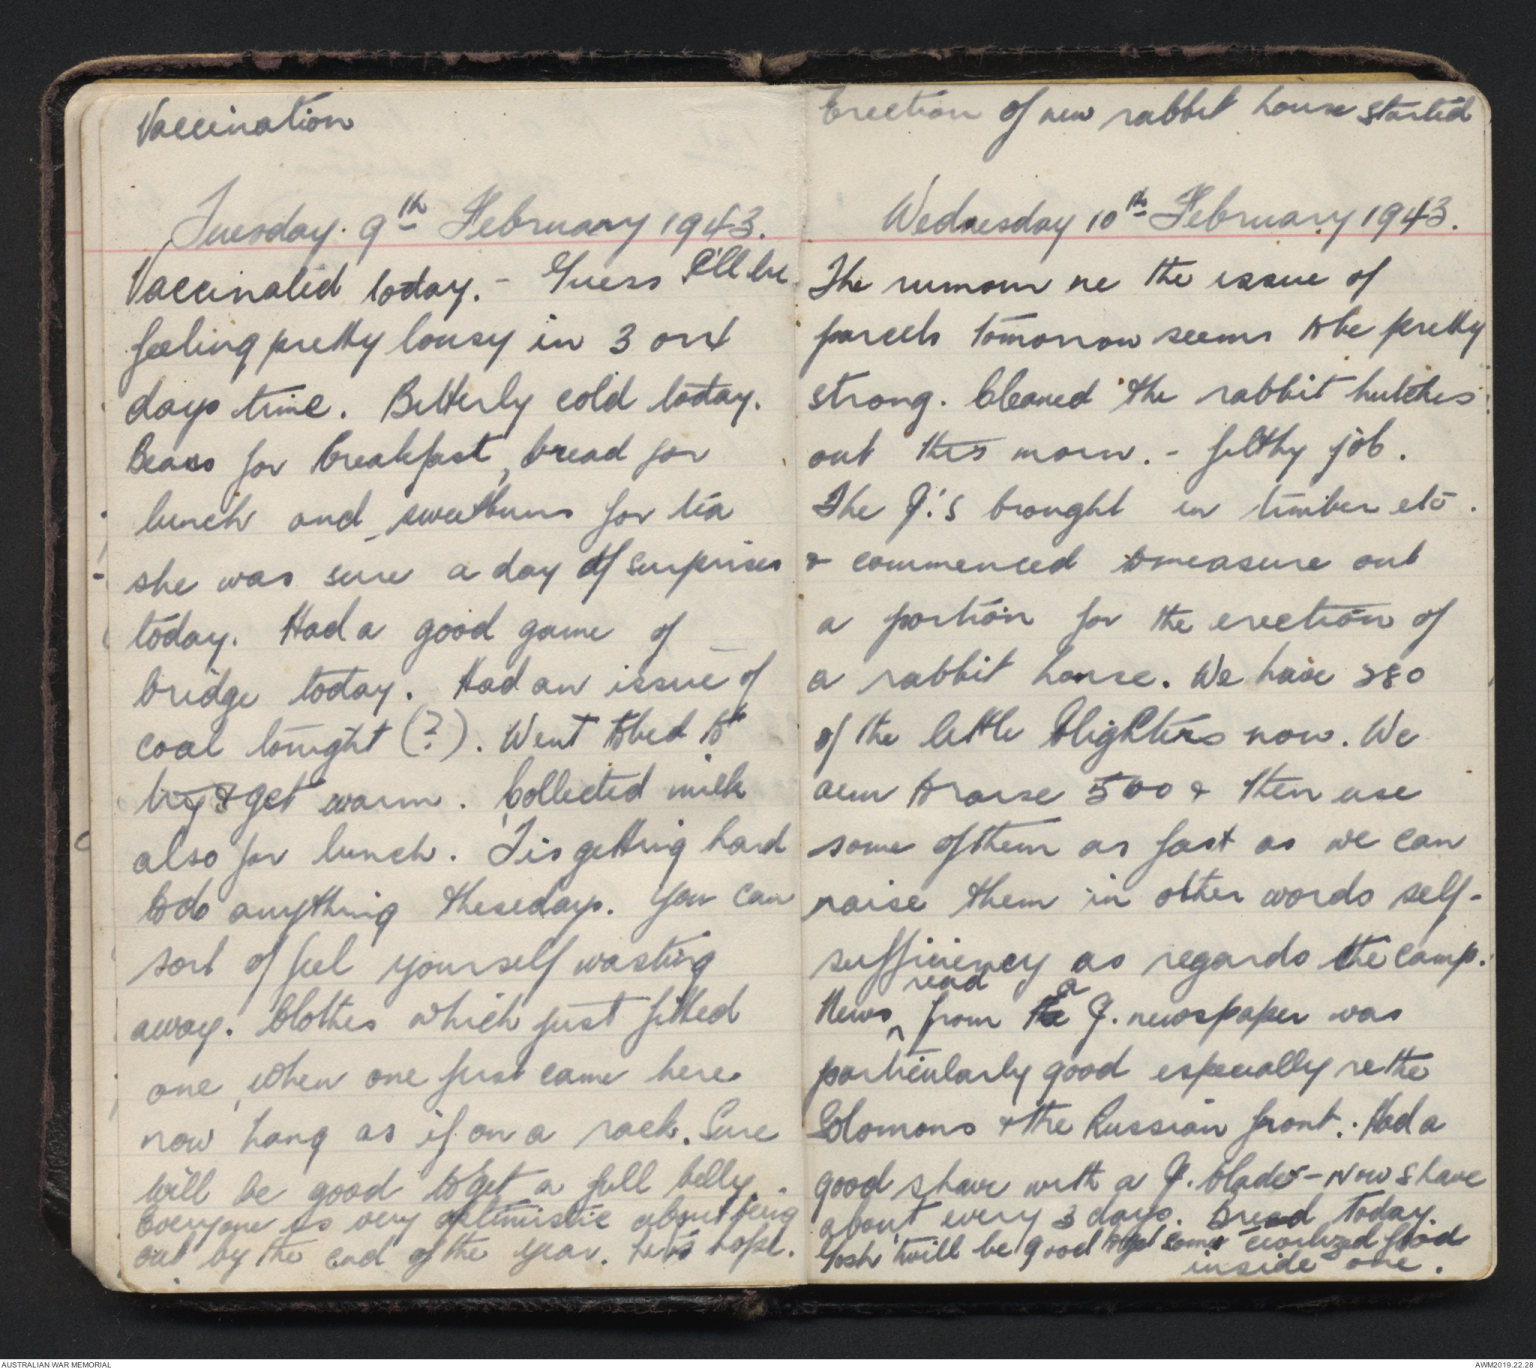 Vaccination
Tuesday. 9th February 1943.
Vaccinated today. - Guess I'll be
feeling pretty lousy in 3 or 4
days time. Bitterly cold today.
Beans for breakfast, bread for
lunch and sweetbuns for tea
she was sure a day of surprises
today. Had a good game of
bridge today. Had an issue of
coal tonight (?). Went to bed to
try & get warm. Collected milk
also for lunch. 'Tis getting hard
to do anything these days. You can
sort of feel yourself wasting
away. Clothes which just fitted
one, when one first came here
now hang as if on a rack. Sure
will be good to get a full belly.
Everyone is very optimistic about being
out by the end of the year. Let's hope.
Erection of new rabbit house started
Wednesday 10th February 1943.
The rumour re the issue of
parcels tomorrow seems to be pretty
strong. Cleaned the rabbit hutches
out this morn. - filthy job.
The J.'s brought in timber etc.
& commenced to measure out
a portion for the erection of
a rabbit house. We have 280
of the little blighters now. We
aim to raise 500 & then use
some of them as fast as we can
raise them in other words self-
sufficiency as regards the camp.
News read from a J. newspaper was
particularly good especially re the
Solomons & the Russian front. Had a
good shave with a J. blade - Now shave
about every 3 days. Bread today.
Gosh 'twill be good to get some civilized food
inside one.
AUSTRALIAN WAR MEMORIAL
AWM2019.22.28